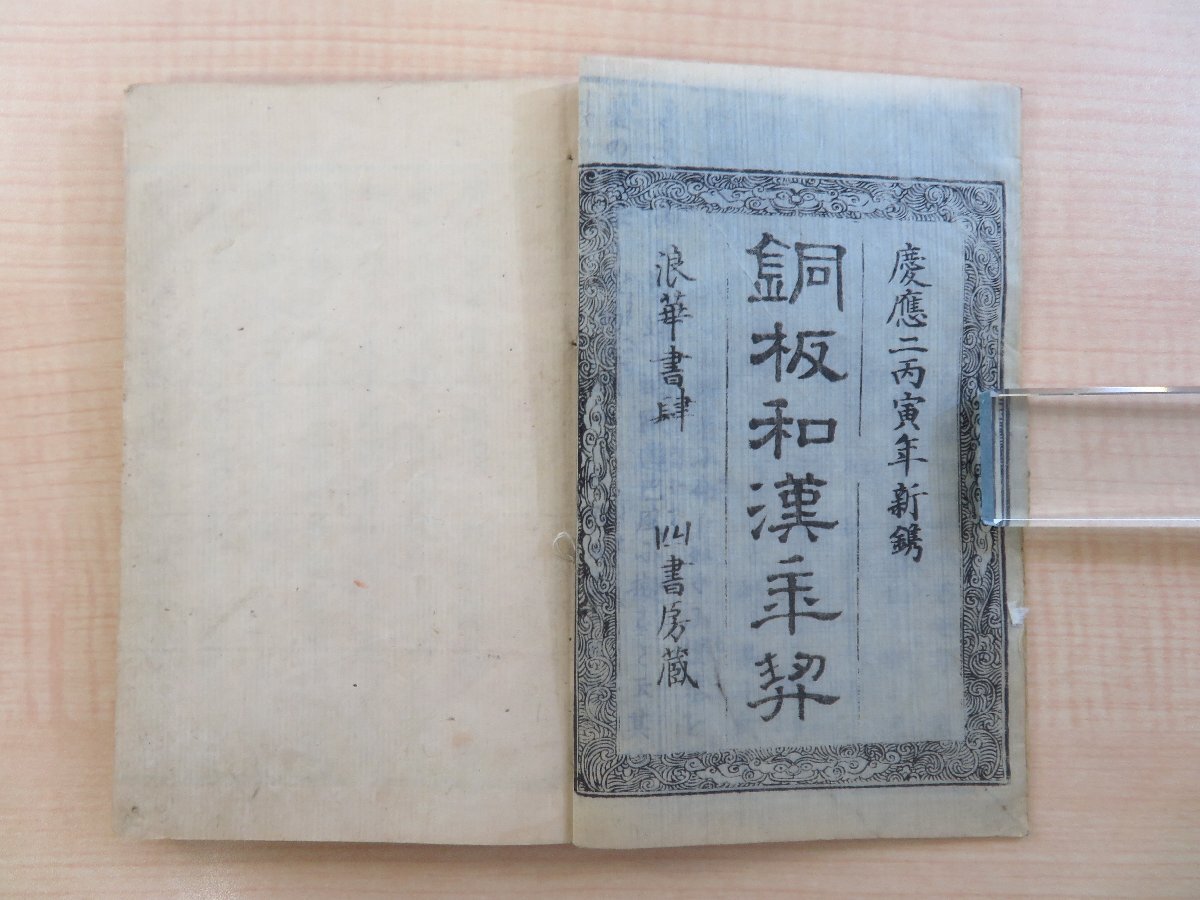 慶應二丙寅年新鐫
銅板和漢年契
浪華書肆 四書房蔵